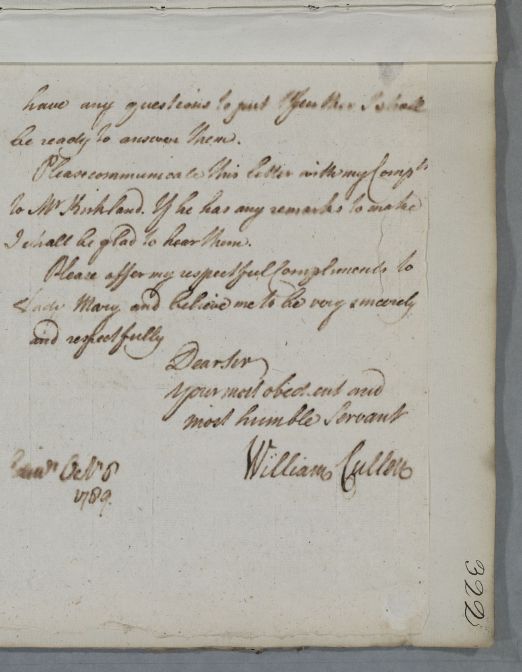 have any questions to put
be ready to answer them.
Please communicate this letter with my Compts
to Mr Kirkland. If he has any remarks to make
I shall be glad to hear them.
Please offer my respectful Compliments to
Lady Mary and believe me to be very sincerely
and respectfully
Dear Sir
your most obedient and
most humble Servant
William Cullen
Octr 8
1789.
322